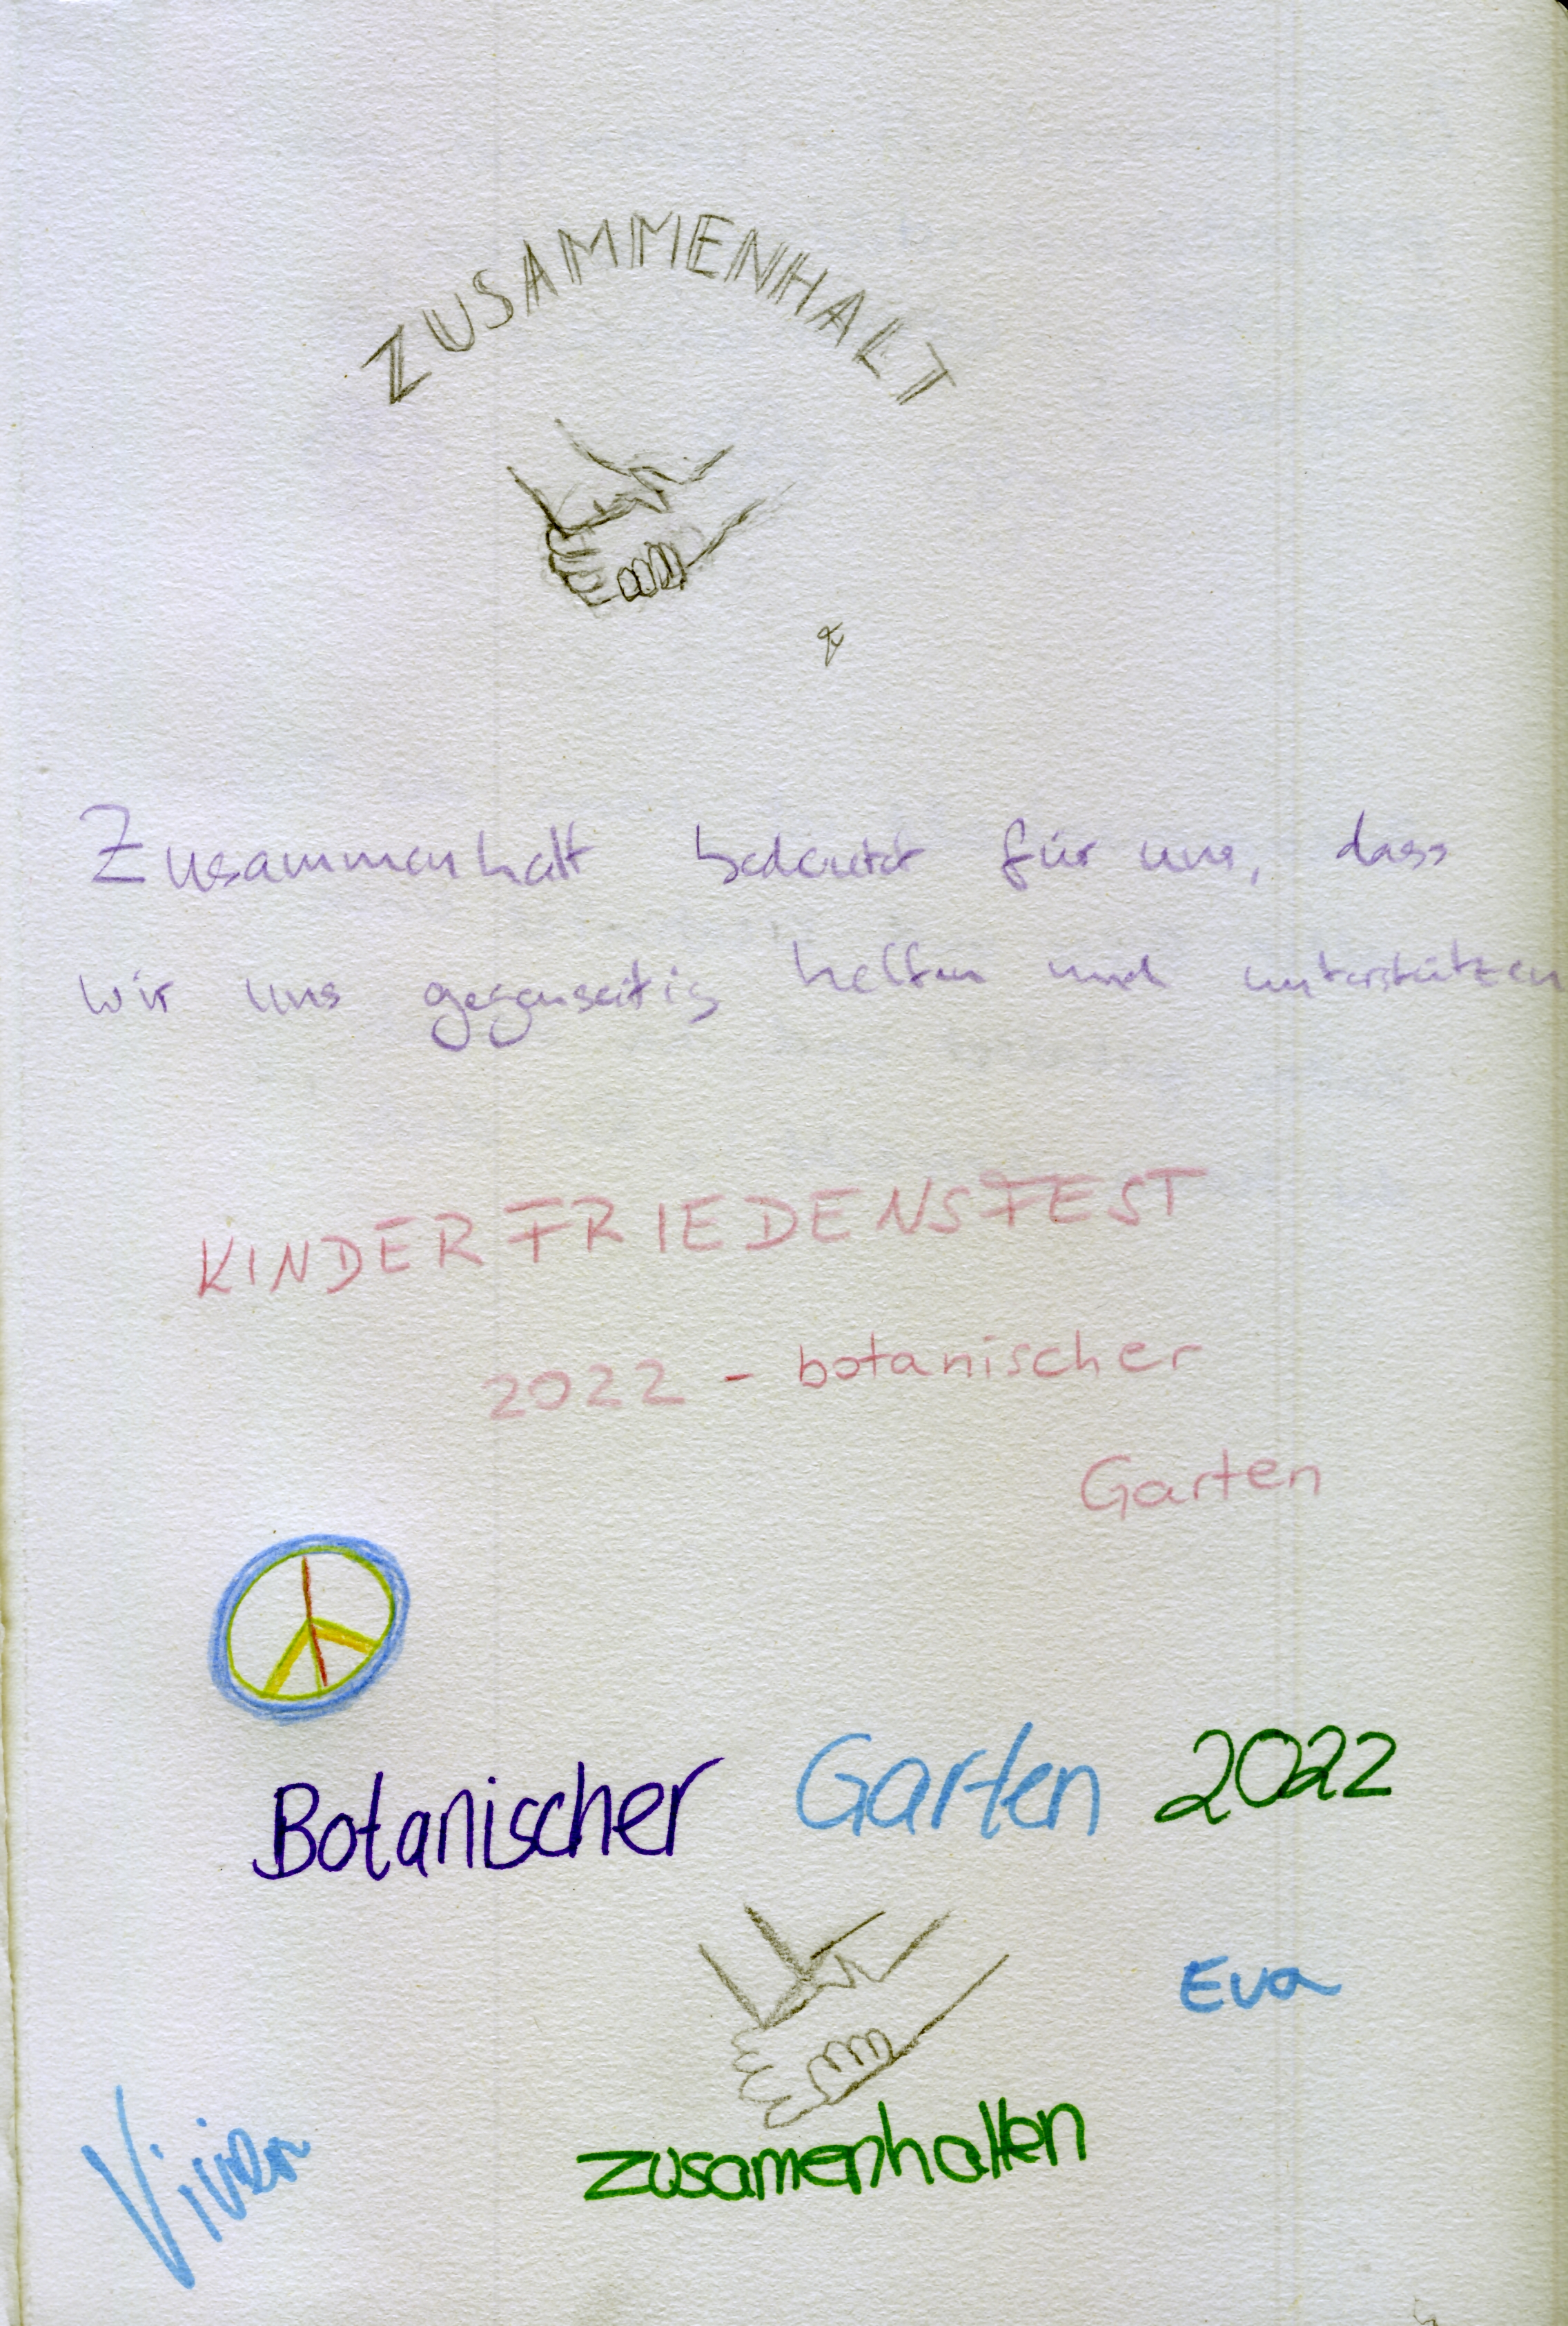 ZUSAMMENHALT
Zusammenhalt bedeutet für uns, dass
wir uns gegenseitig helfen und unterstützen
KINDERFRIEDENSFEST
2022 - botanischer
Garten
Botanischer Garten 2022
Eva
Vivien
zusamenhalten